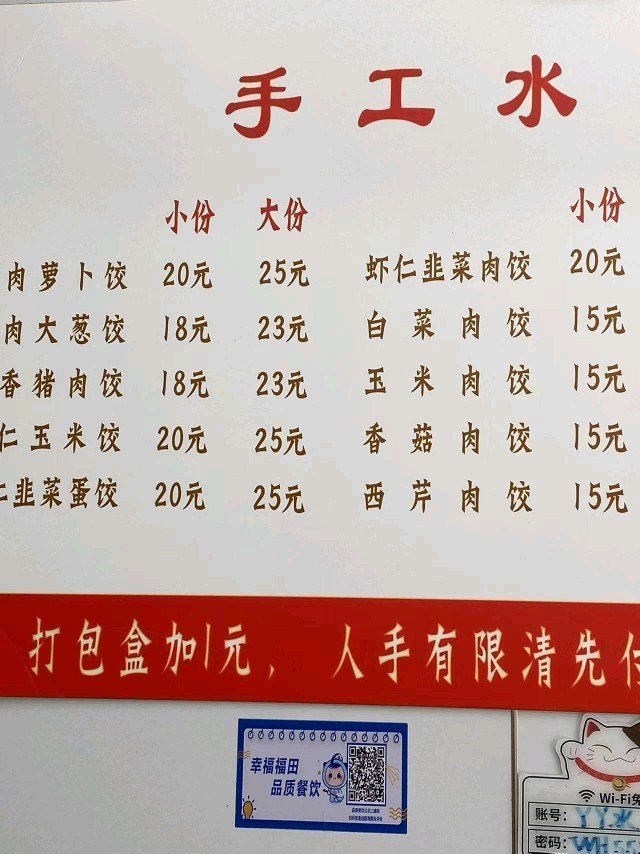 手工水
小份 大份
肉萝卜饺 20元 25元
肉大葱饺 18元 23元
香猪肉饺 18元 23元
仁玉米饺 20元 25元
仁韭菜蛋饺 20元 25元
小份
虾仁韭菜肉饺 20元
白菜肉饺 15元
玉米肉饺 15元
香菇肉饺 15元
西芹肉饺 15元
打包盒加1元，人手有限清先付
幸福福田
品质餐饮
Wi-Fi免
账号: YY.水
密码: WH55